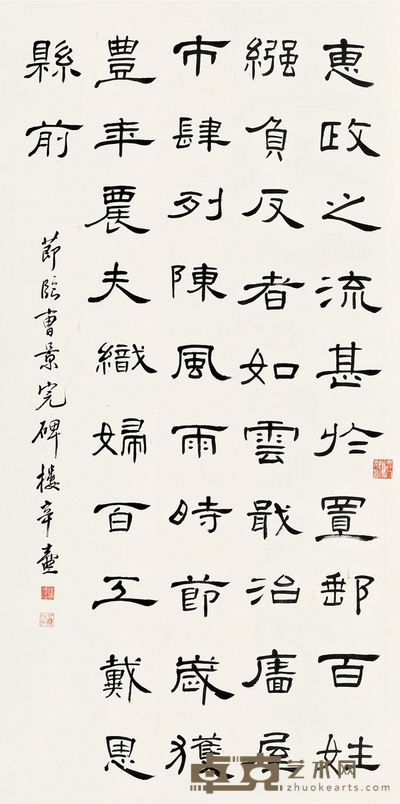 惠政之流甚於置郵百姓
繦負反者如雲戢治廧屋
市肆列陳風雨時節歲獲
豐年農夫織婦百工戴恩
縣前
節臨曹景完碑樓辛壺
卓克艺术网
zhuokearts.com